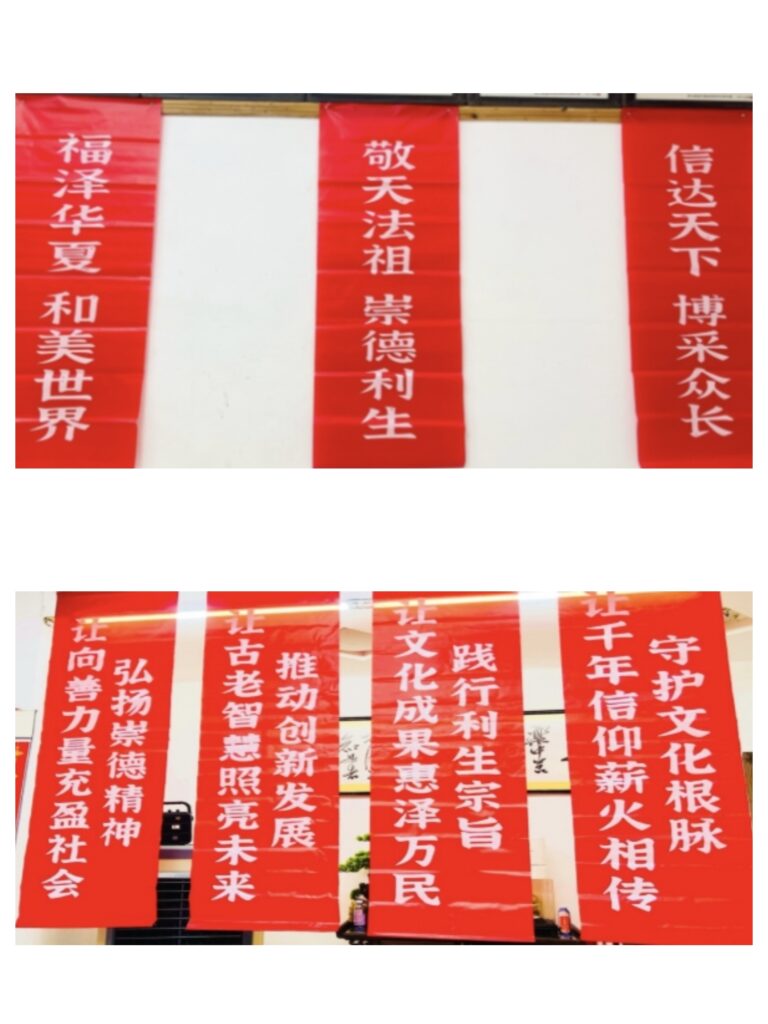 信达天下 博采众长
敬天法祖 崇德利生
福泽华夏 和美世界
守护文化根脉
让千年信仰薪火相传
践行利生宗旨
让文化成果惠泽万民
推动创新发展
让古老智慧照亮未来
弘扬崇德精神
让向善力量充盈社会